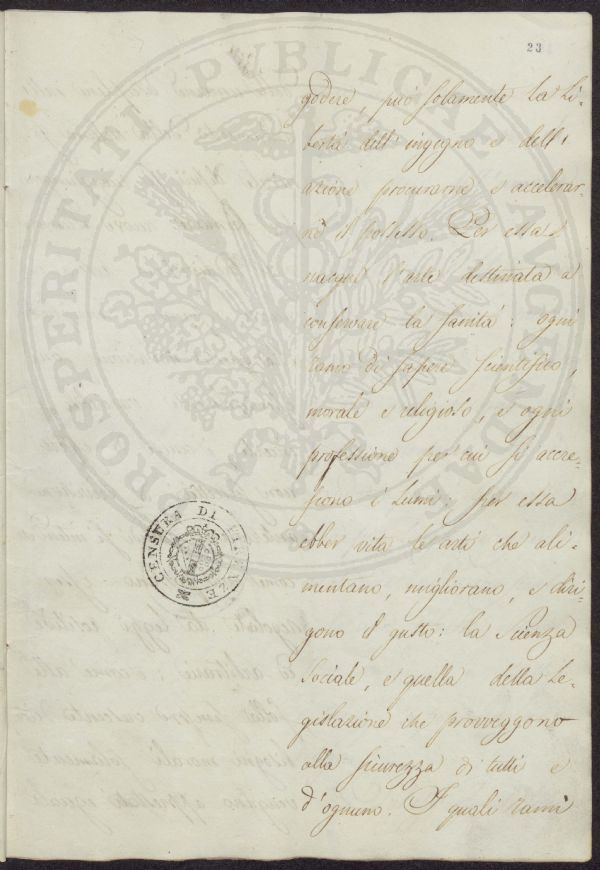 23
godere, può solamente la Li-
bertà dell' ingegno e dell'
azione procurarne e accelerar-
ne il possesso. Per essa
nacque l'arte destinata a
conservare la Sanità: ogni
ramo di sapere scientifico,
morale e religioso, e ogni
professione per cui si accre-
scono i Lumi: per essa
ebber vita le arti che ali-
mentano, migliorano, e diri-
gono il gusto: la Scienza
Sociale, e quella della Le-
gislazione che provveggono
alla sicurezza di tutti e
d'ognuno. I quali rami
CENSURA DI FIRENZE
PROSPERITATI PUBLICAE AUGENDAE